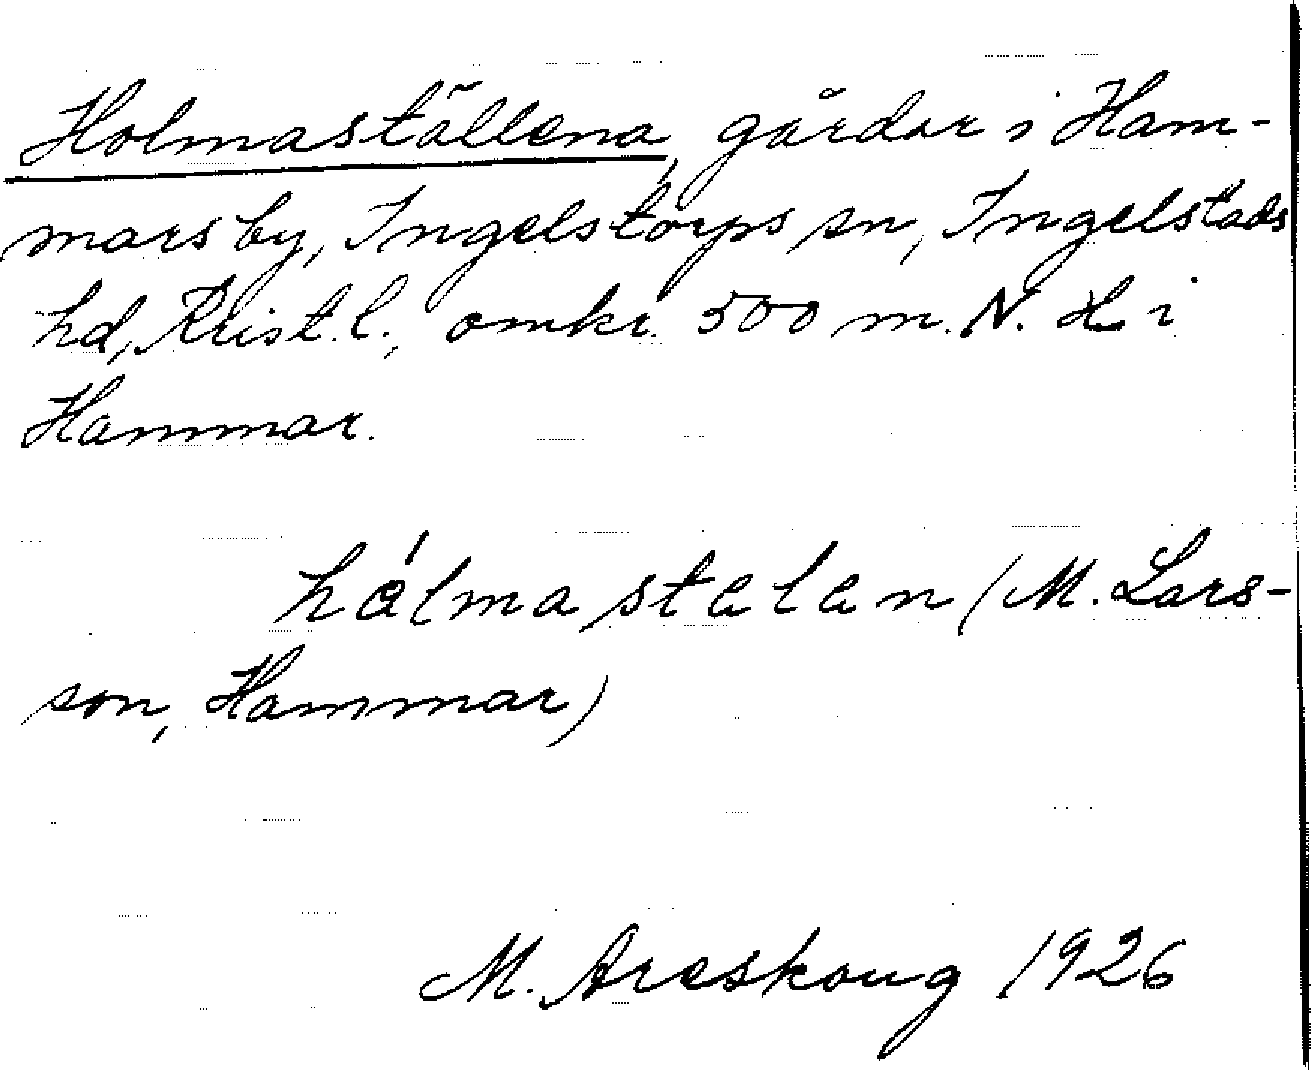 Holmaställena, gårdar i Ham-
mars by, Ingelstorps sn, Ingelstads
hd, Krist. l., omkr. 500 m. N.
Hammar.
hålmastelen (M. Lars-
son, Hammar)
M. Areskoug 1926